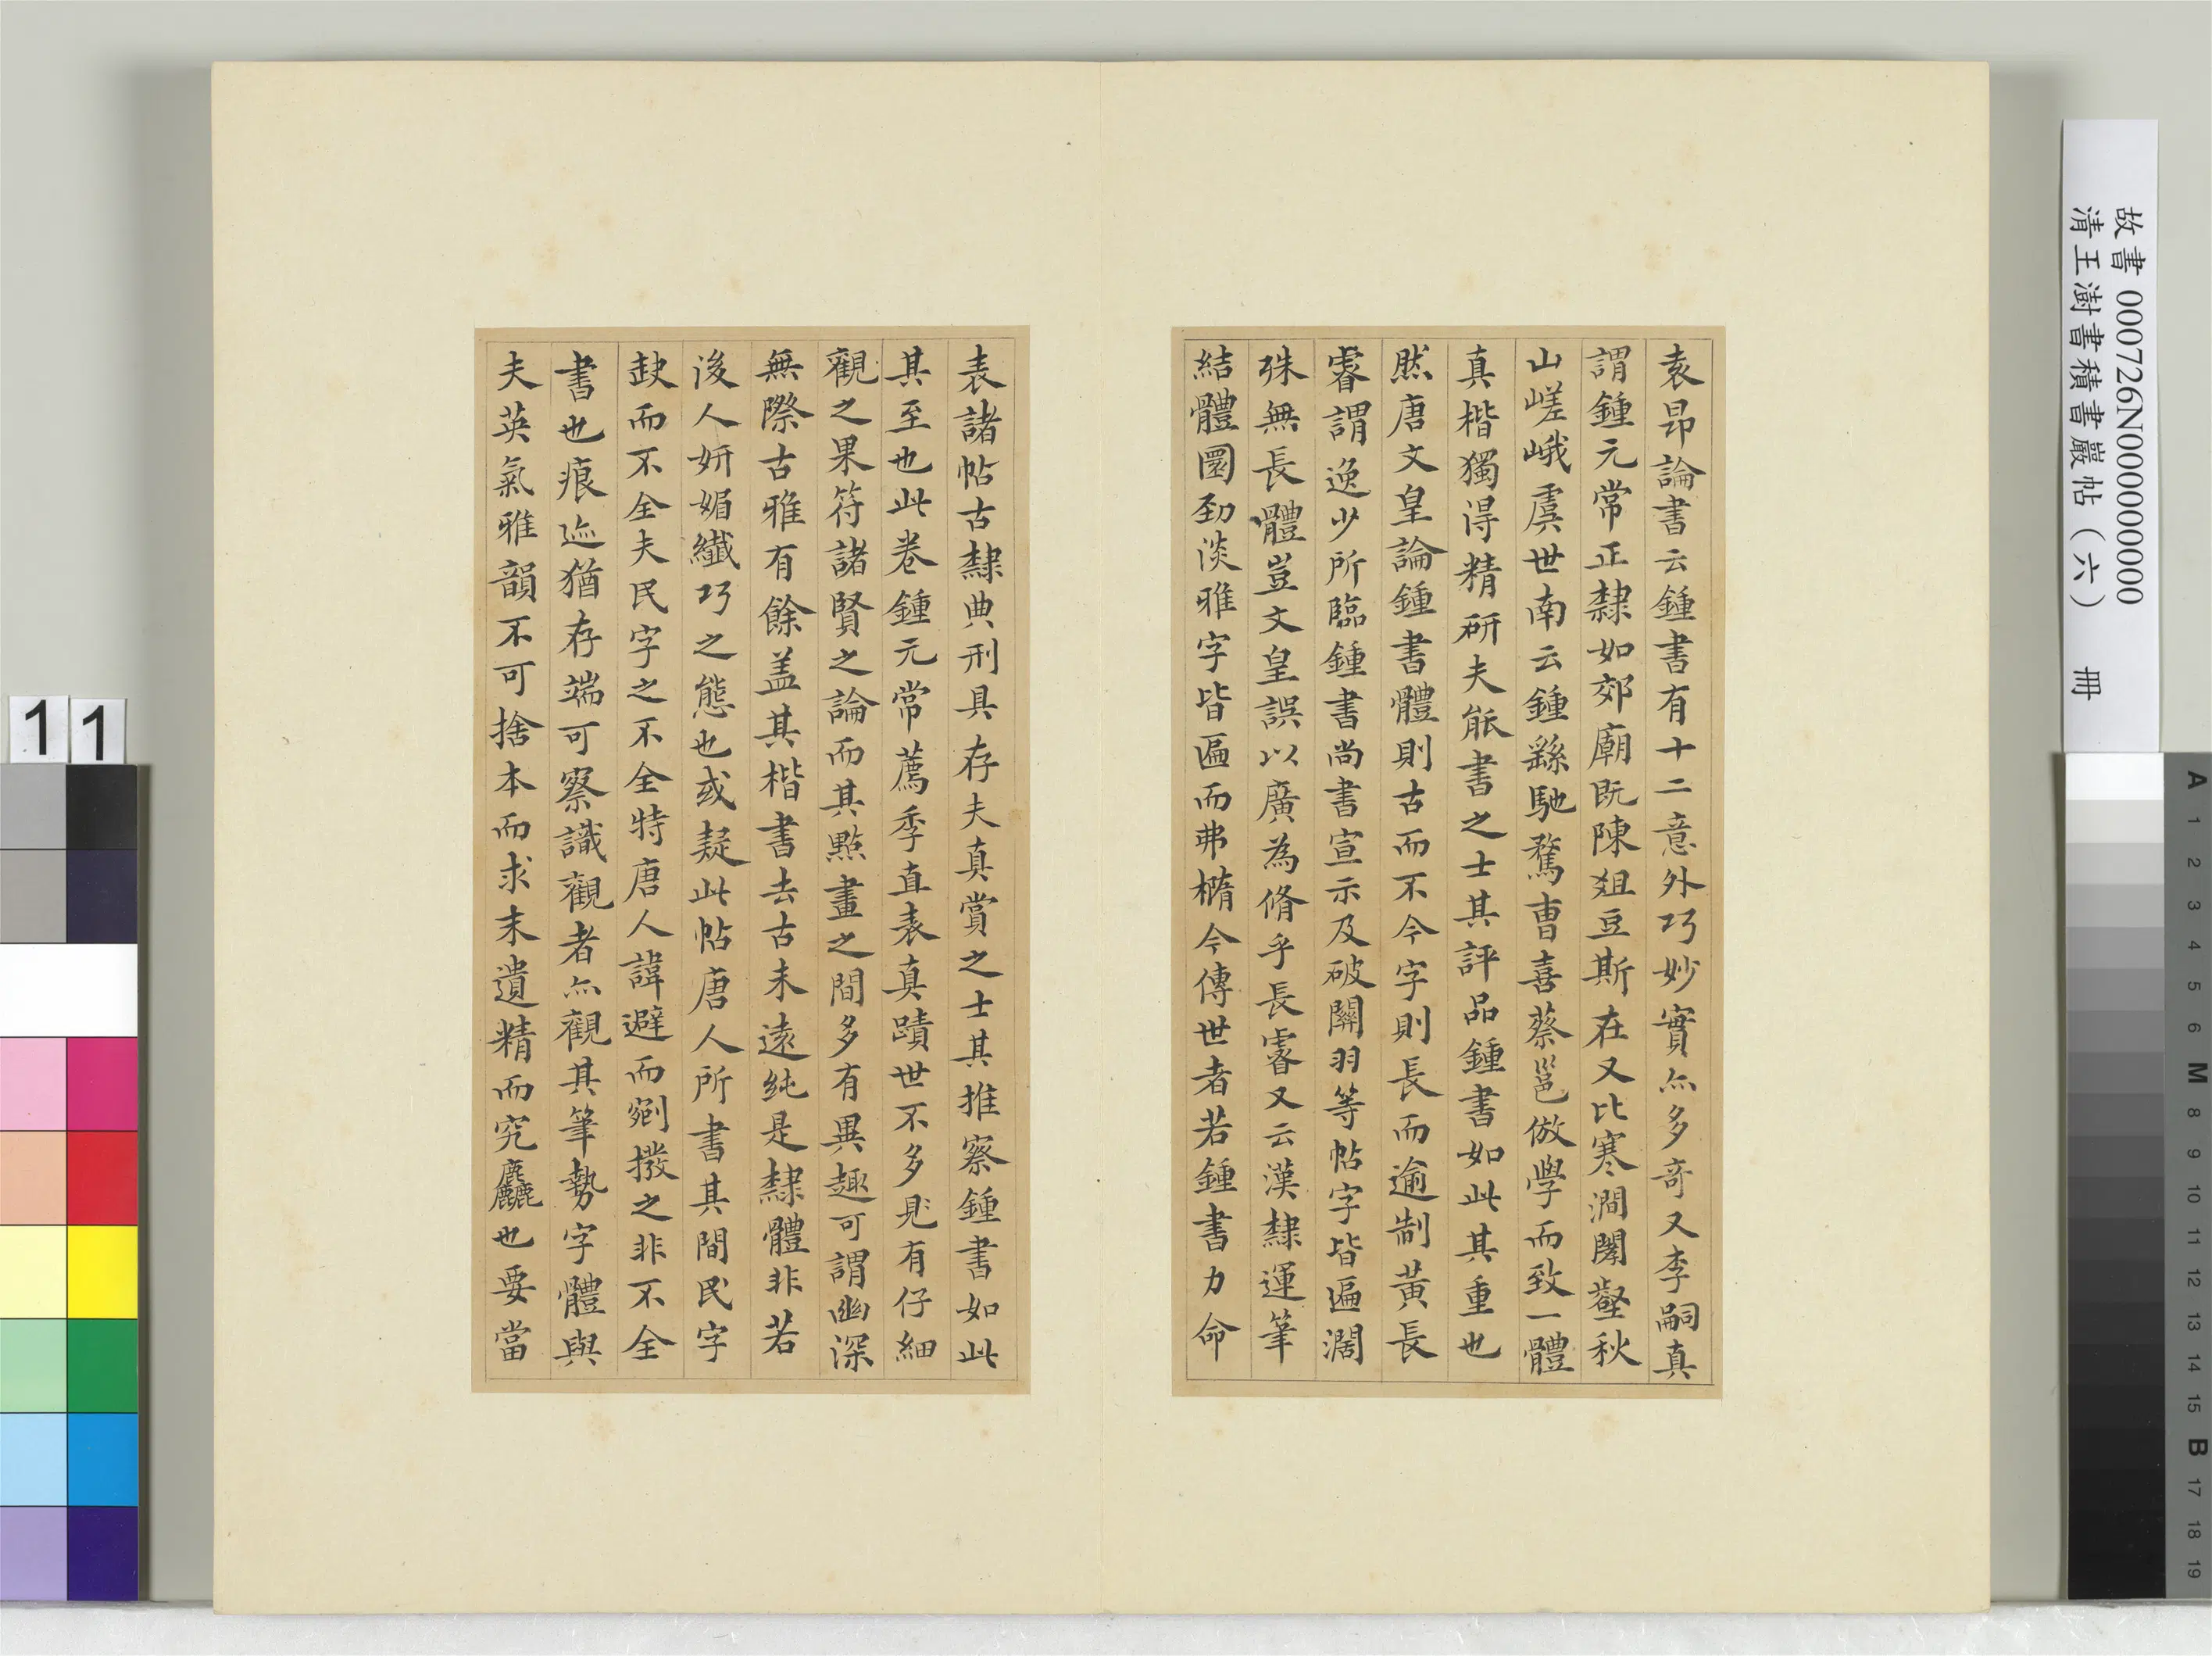 袁昂論書云鍾書有十二意外巧妙實亦多奇又李嗣真
謂鍾元常正隸如郊廟既陳俎豆斯在又比寒澗闃壑秋
山嵯峨虞世南云鍾繇馳騖曺喜蔡邕倣學而致一體
真楷獨得精研夫能書之士其評品鍾書如此其重也
然唐文皇論鍾書體則古而不今字則長而逾制黃長
睿謂逸少所臨鍾書尚書宣示及破關羽等帖字皆匾濶
殊無長體豈文皇誤以廣為脩乎長睿又云漢隸運筆
結體圜勁淡雅字皆匾而弗橢今傳世者若鍾書力命
表諸帖古隸典刑具存夫真賞之士其推察鍾書如此
其至也此卷鍾元常薦季直表真蹟世不多見有仔細
觀之果符諸賢之論而其點畫之間多有異趣可謂幽深
無際古雅有餘盖其楷書去古未遠純是隸體非若
後人妍媚纖巧之態也或疑此帖唐人所書其間民字
缺而不全夫民字之不全特唐人諱避而剜撥之非不全
書也痕迹猶存端可察識觀者亦觀其筆勢字體與
夫英氣雅韻不可捨本而求末遺精而究麤也要當
故書 000726N000000000
清王澍書積書巖帖（六） 冊
11
A 1 2 3 4 5 6 M 8 9 10 11 12 13 14 15 B 17 18 19